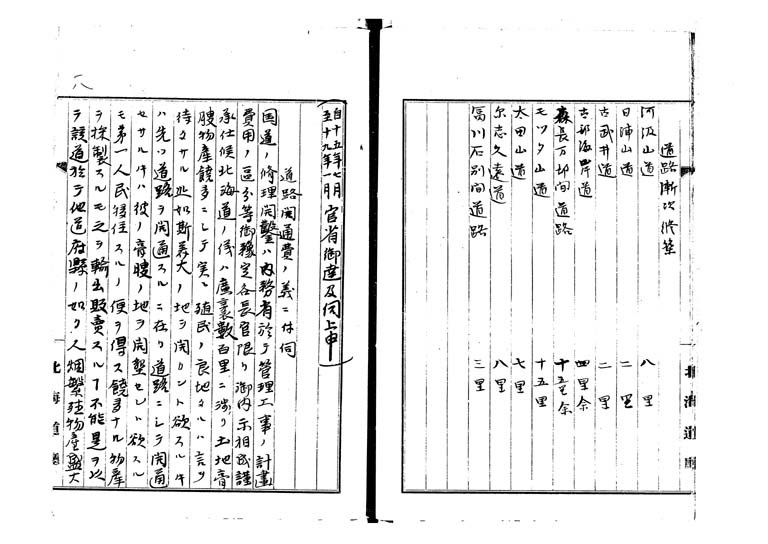 道路漸次修築
阿汲山道 八里
日浦山道 二里
古武井道 二里
古部海岸道 四里余
森長万部間道路 十五里余
モツタ山道 十五里
太田山道 七里
尓志久遠道 八里
冨川石別間道路 三里
北海道庁
自十五年七月
至十九年一月 官省御達及伺上申
道路開通費ノ義ニ付伺
国道ノ修理開鑿ハ内務省於テ管理工事ノ計画
費用ノ区分等御豫定各長官限リ御内示相成謹
承仕候北海道ノ儀ハ廣袤数百里ニ渉リ土地膏
腴物産饒多ニシテ実ニ殖民ノ良地タルハ言ヲ
待タサル処如斯莫大ノ地ヲ開カント欲スルキ
ハ先ツ道路ヲ開通スルニ在リ道路ニシテ開通
セサルキハ彼ノ膏腴ノ地ヲ開墾セント欲スル
モ第一人民移住スルノ便ヲ得ス饒多ナル物産
ヲ採製スルモ之ヲ輸出販賣スルヿ不能是ヲ以
テ該道於テ他道府縣ノ如ク人烟繁殖物産盛大
北海道廳
八